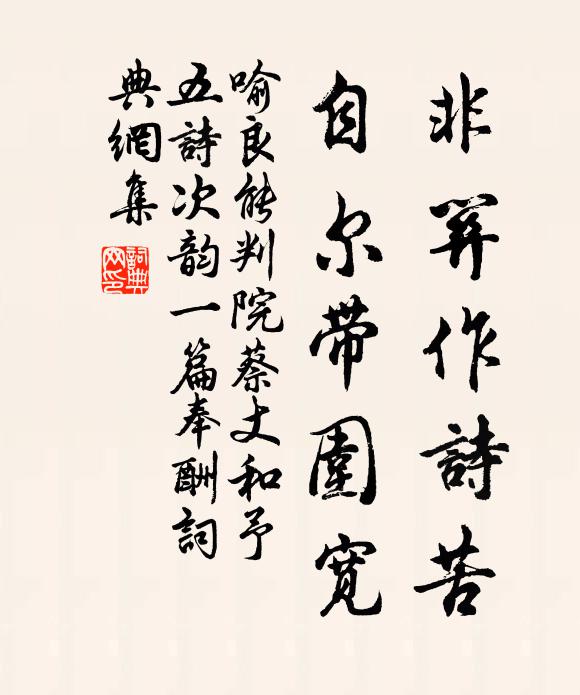 非關作詩苦
自尔带圍寬
喻良能判院蔡丈和予
五詩次韵一篇奉酬詞
典網集
詞典网印